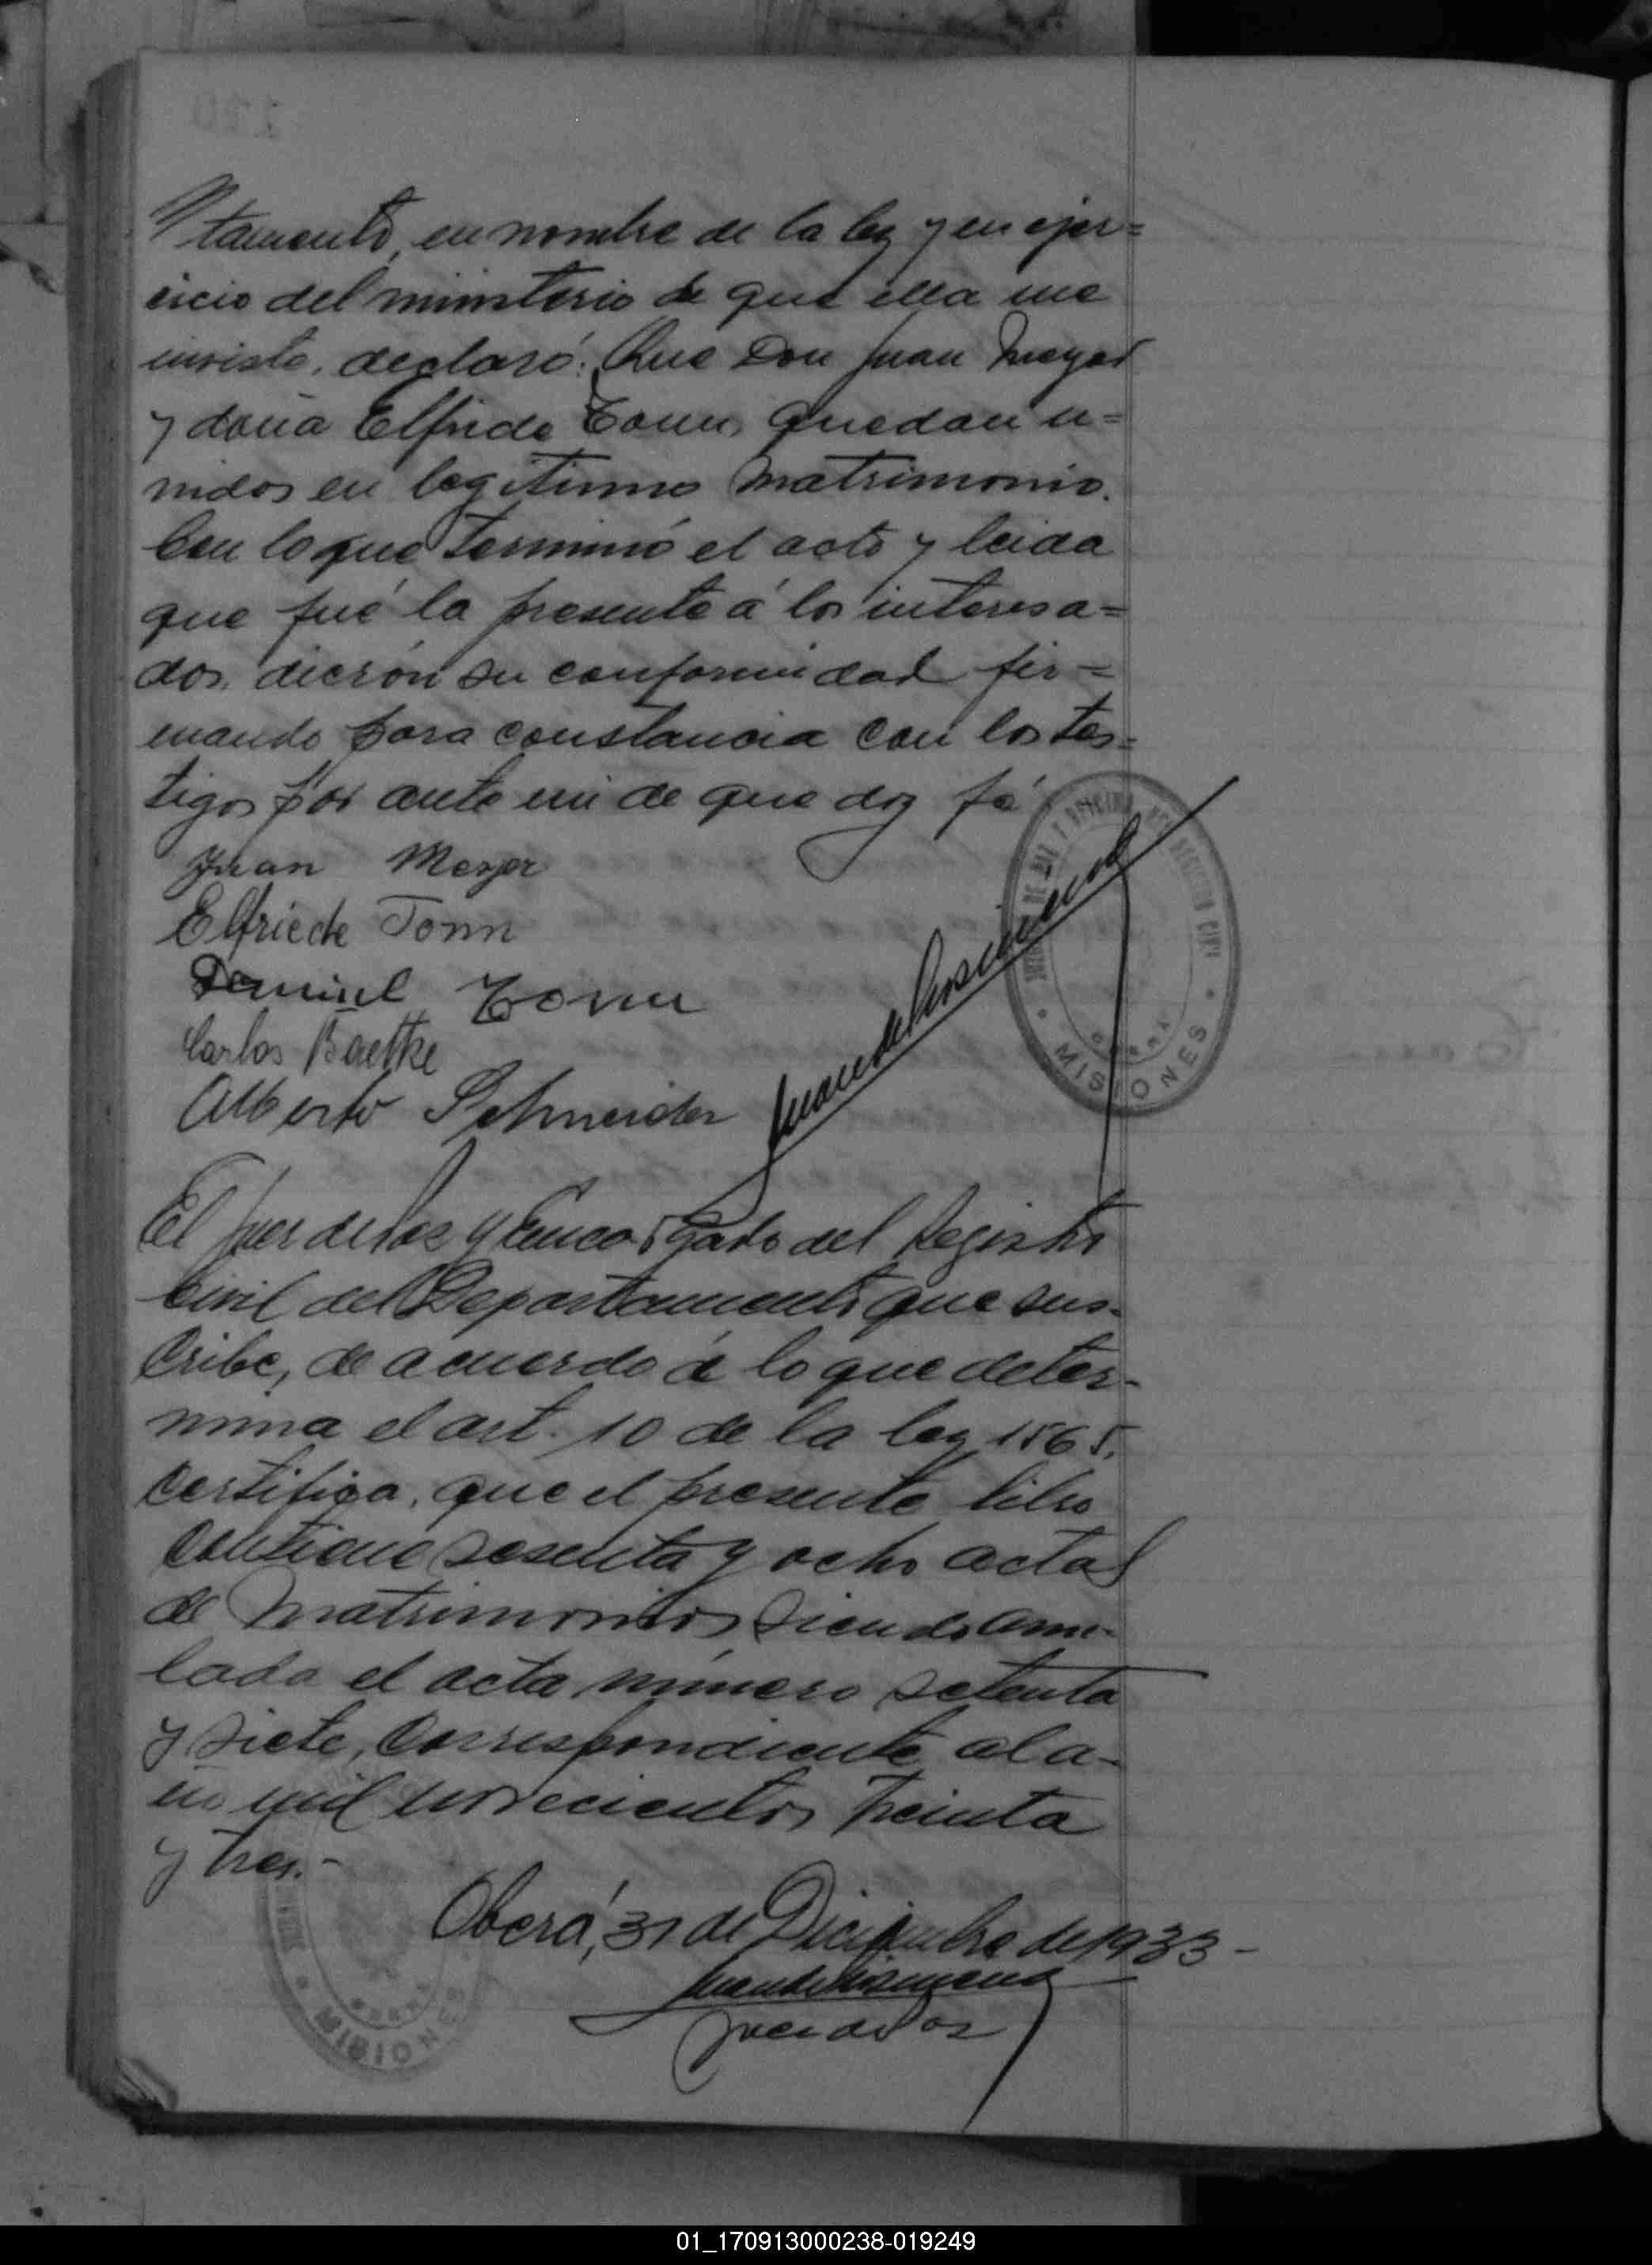 tamento, en nombre de la ley y en ejer=
cicio del ministerio de que ella me
inviste, declaró: Que Don Juan Meyer
y doña Elfride Tonn, quedan u=
nidos en legitimo matrimonio.
Con lo que terminó el acto y leida
que fué la presente á los interesa=
dos, dierón su conformidad fir=
mando para constancia con los tes=
tigos por ante mi de que doy fé
Juan Meyer
Elfriede Tonn
Daniel Tonn
Carlos Baetke
Alberto Schneider
MISIONES
El Juez de Paz y Encargado del Registro
Civil del Departamento que sus-
cribe, de acuerdo á lo que deter-
mina el art. 10 de la ley 1565,
certifica, que el presente libro
contiene sesenta y ocho actas
de Matrimonios siendo anu-
lada el acta número setenta
y siete, correspondiente al a-
ño mil novecientos treinta
y tres.-
Oberá, 31 de Diciembre de 1933-
Juez de Paz
MISIONES
01_170913000238-019249